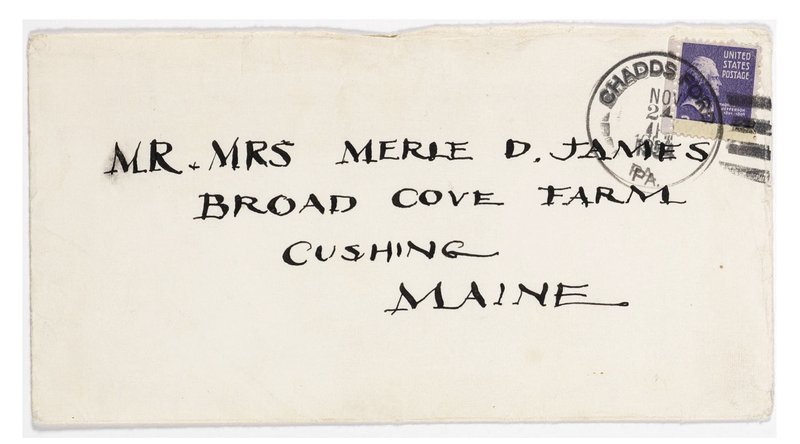 UNITED
STATES
POSTAGE
CHADDS FORD
NOV
24
PA.
MR. MRS MERLE D. JAMES
BROAD COVE FARM
CUSHING
MAINE.